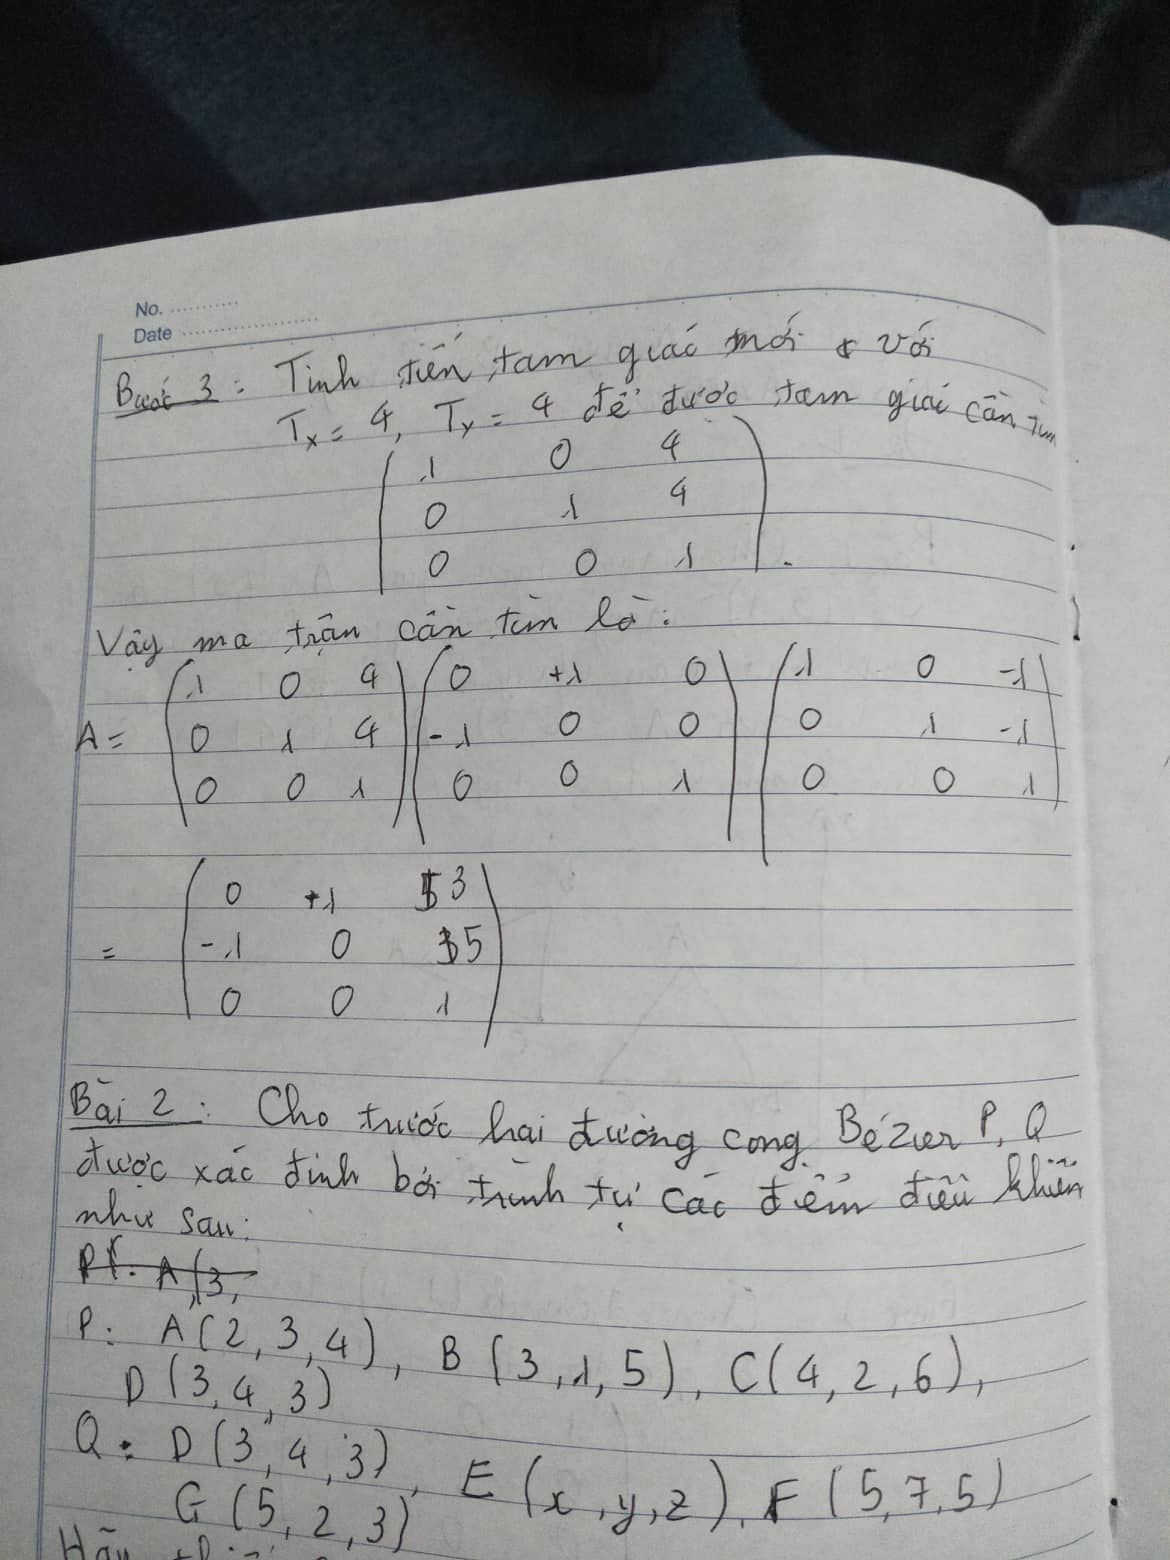 No. ............
Date ........................
Bước 3: Tịnh tiến tam giác mới với
Tx = 4, Ty = 4 để được tam giác cần tìm
1 0 4
0 1 4
0 0 1.
Vậy ma trận cần tìm là:
A = (1 0 4) (0 +1 0) (1 0 -1)
(0 1 4) (-1 0 0) (0 1 -1)
(0 0 1) (0 0 1) (0 0 1)
= (0 +1 3)
(-1 0 5)
(0 0 1)
Bài 2: Cho trước hai đường cong Bézier P, Q
được xác định bởi trình tự các điểm điều khiển
như sau:
P: A(2,3,4), B(3,1,5), C(4,2,6),
D(3,4,3)
Q: D(3,4,3), E(x,y,z), F(5,7,5)
G(5,2,3)
Hãy